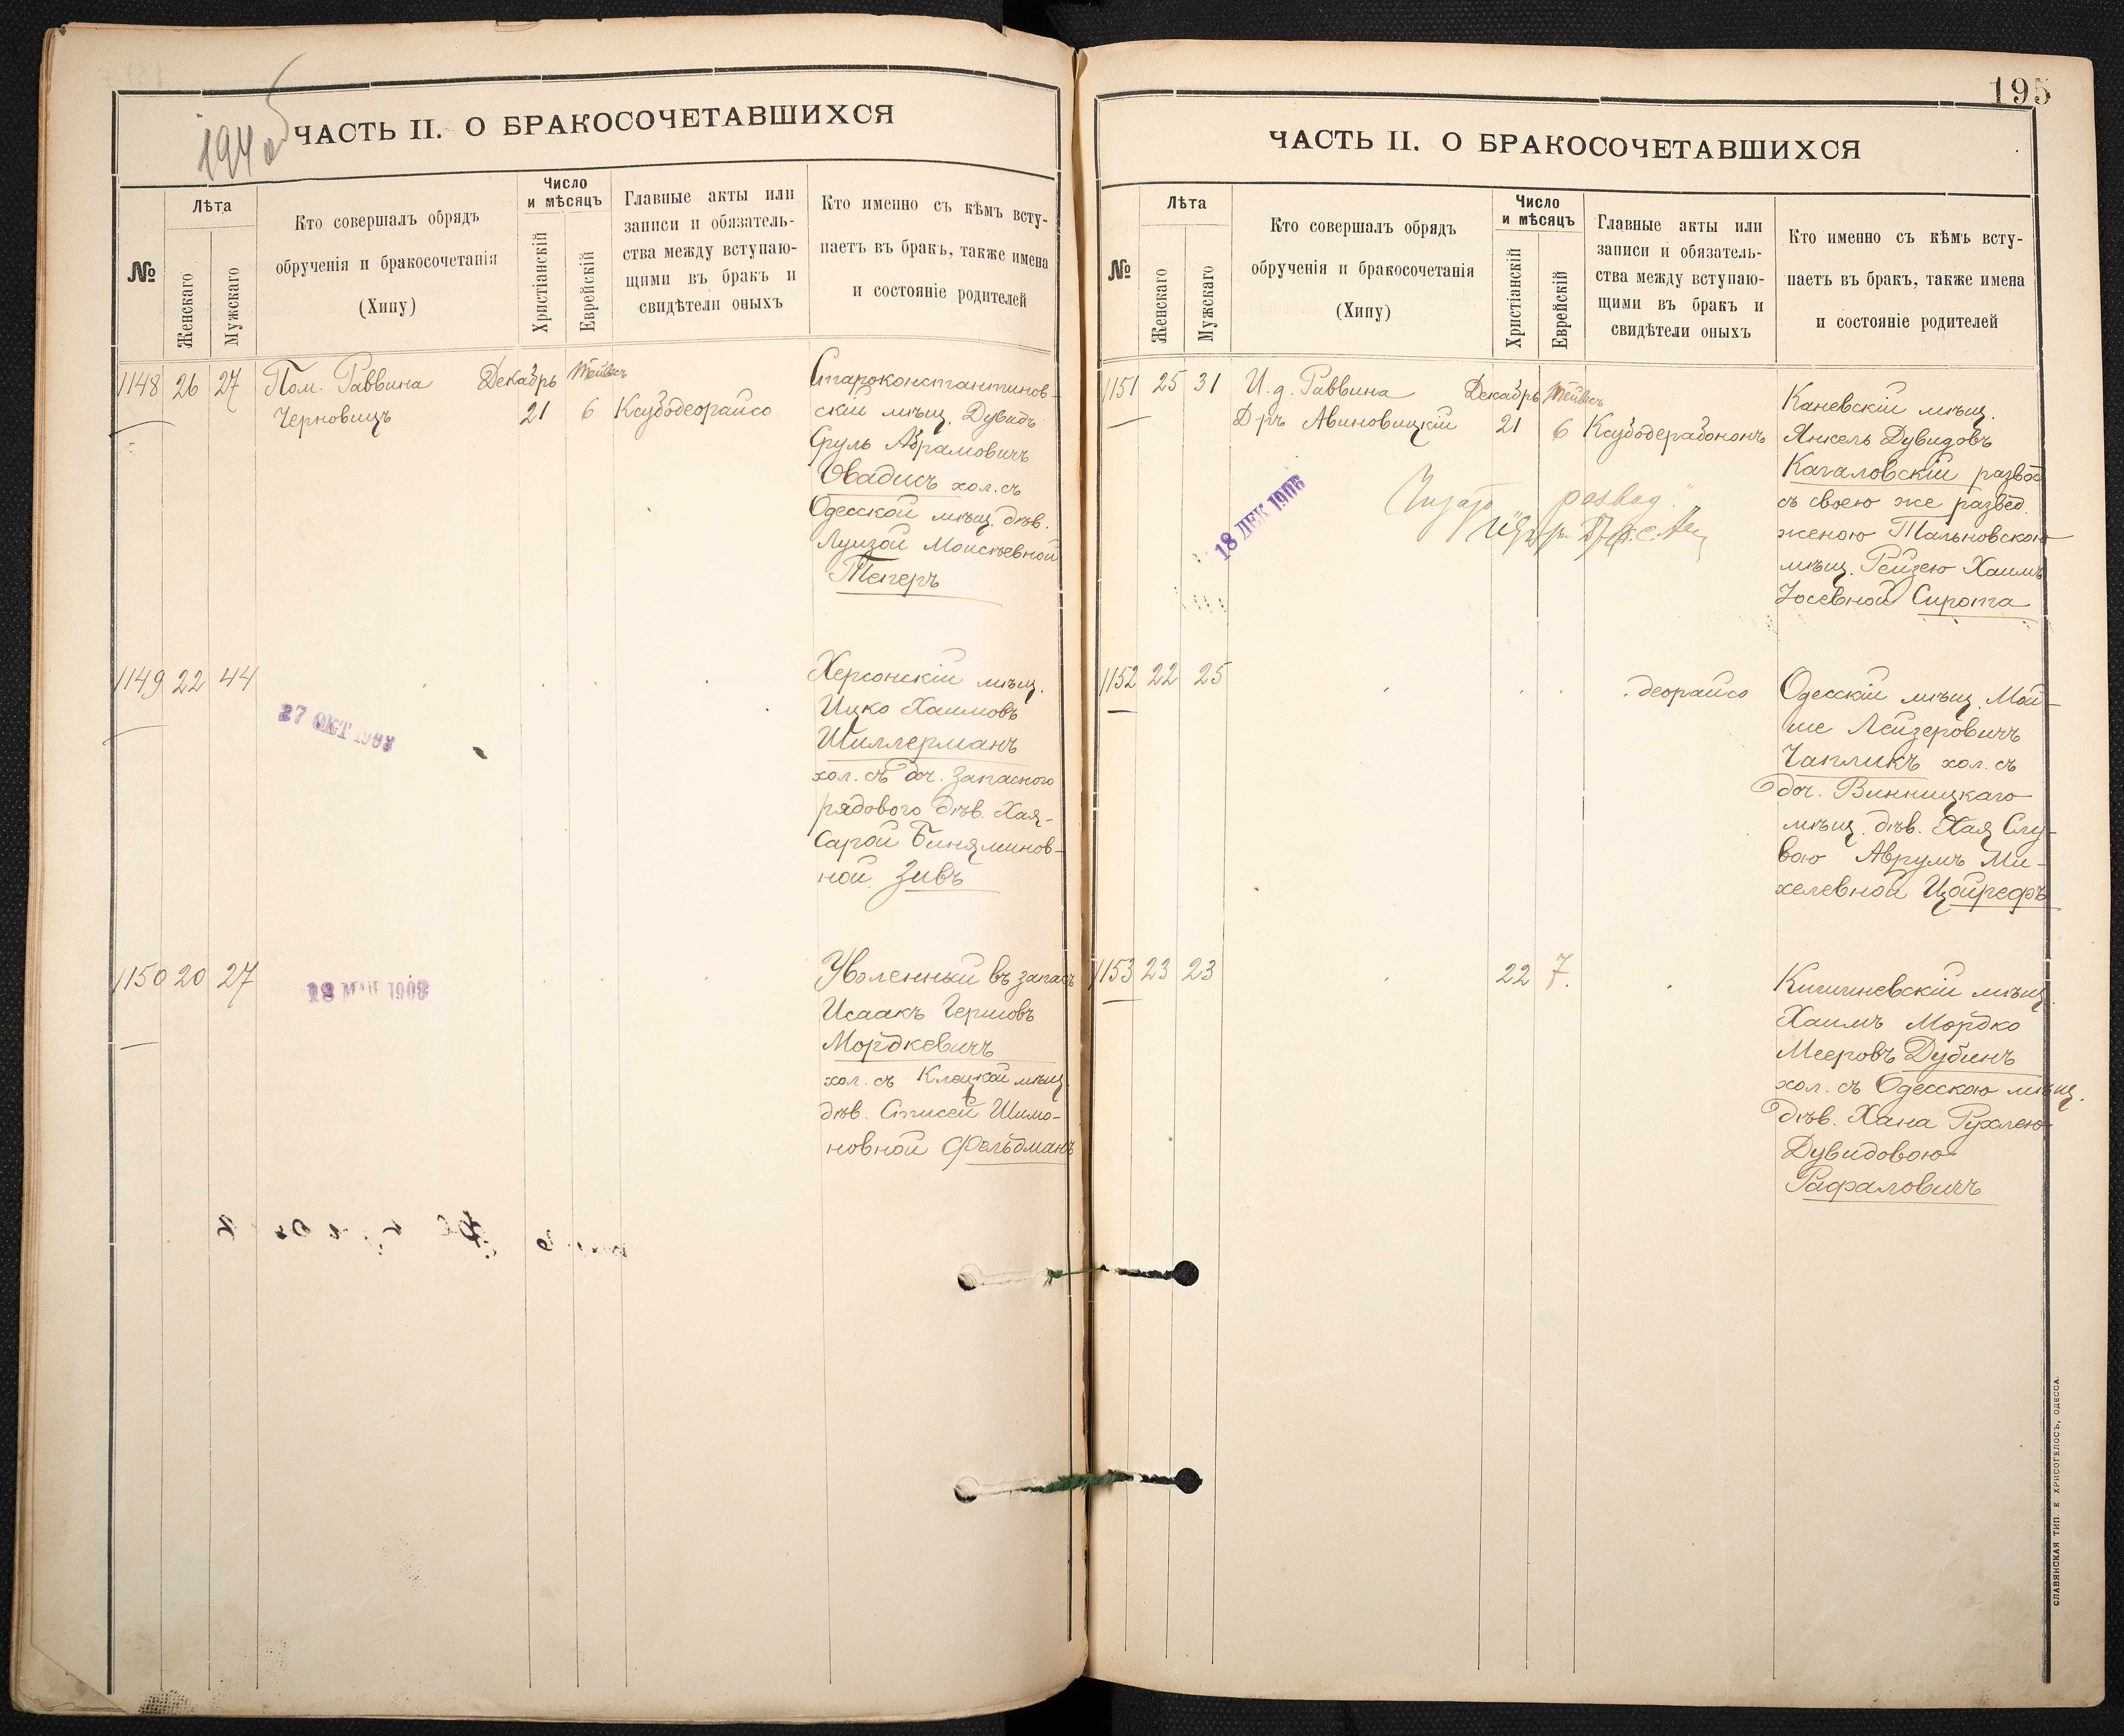 194 об
ЧАСТЬ II. О БРАКОСОЧЕТАВШИХСЯ
№
Лѣта
Женскаго
Мужскаго
Кто совершалъ обрядъ
обрученія и бракосочетанія
(Хипу)
Число
и мѣсяцъ
Христіанскій
Еврейскій
Главные акты или
записи и обязатель-
ства между вступаю-
щими въ бракъ и
свидѣтели оныхъ
Кто именно съ кѣмъ всту-
паетъ въ бракъ, также имена
и состояніе родителей
1148 26 27 Пом. Раввина Декабрь Тейвесъ
Черновицъ 21 6 Ксубодеорайсо
Староконстантинов-
скій мѣщ. Дувидъ
Сруль Абрамовичъ
Овадисъ хол. съ
Одесской мѣщ. дѣв.
Луизой Моисѣевной
Теперъ
1149 22 44
27 ОКТ 1908
Херсонскій мѣщ.
Ицко Хаимовъ
Шиллерманъ
хол. съ доч. запасного
рядового дѣв. Хая-
Сарой Биняминов-
ной Зивъ
1150 20 27
Уволенный въ запасъ
Исаакъ Гершовъ
Мордкевичъ
хол. съ Клецкой мѣщ.
дѣв. Шимо-
новной Фельдманъ
195
ЧАСТЬ II. О БРАКОСОЧЕТАВШИХСЯ
№
Лѣта
Женскаго
Мужскаго
Кто совершалъ обрядъ
обрученія и бракосочетанія
(Хипу)
Число
и мѣсяцъ
Христіанскій
Еврейскій
Главные акты или
записи и обязатель-
ства между вступаю-
щими въ бракъ и
свидѣтели оныхъ
Кто именно съ кѣмъ всту-
паетъ въ бракъ, также имена
и состояніе родителей
1151 25 31 И. д. Раввина Декабрь Тейвесъ
Д-ръ Авиновицкій 21 6 Ксубодерабононъ
18 ДЕК 1906
развед."
Каневскій мѣщ.
Янкель Дувидовъ
Кагаловскій развод
съ своею же развед.
женою Тальновскою
мѣщ. Рейзею Хаимъ
Іосевной Сирота
1152 22 25 деорайсо
Одесскій мѣщ. Мой-
ше Лейзеровичъ
Чапликъ хол. съ
доч. Винницкаго
мѣщ. дѣв. Хая Слу-
вою Аврумъ Ми-
хелевной Цойрефъ
1153 23 23 22 7.
Кишиневскій мѣщ.
Хаимъ Мордко
Мееровъ Дубинъ
хол. съ Одесскою мѣщ.
дѣв. Хана Рухлею
Дувидовою
Рафаловичъ
СЛАВЯНСКАЯ ТИП. Е ХРИСОГЕЛОСЪ, ОДЕССА